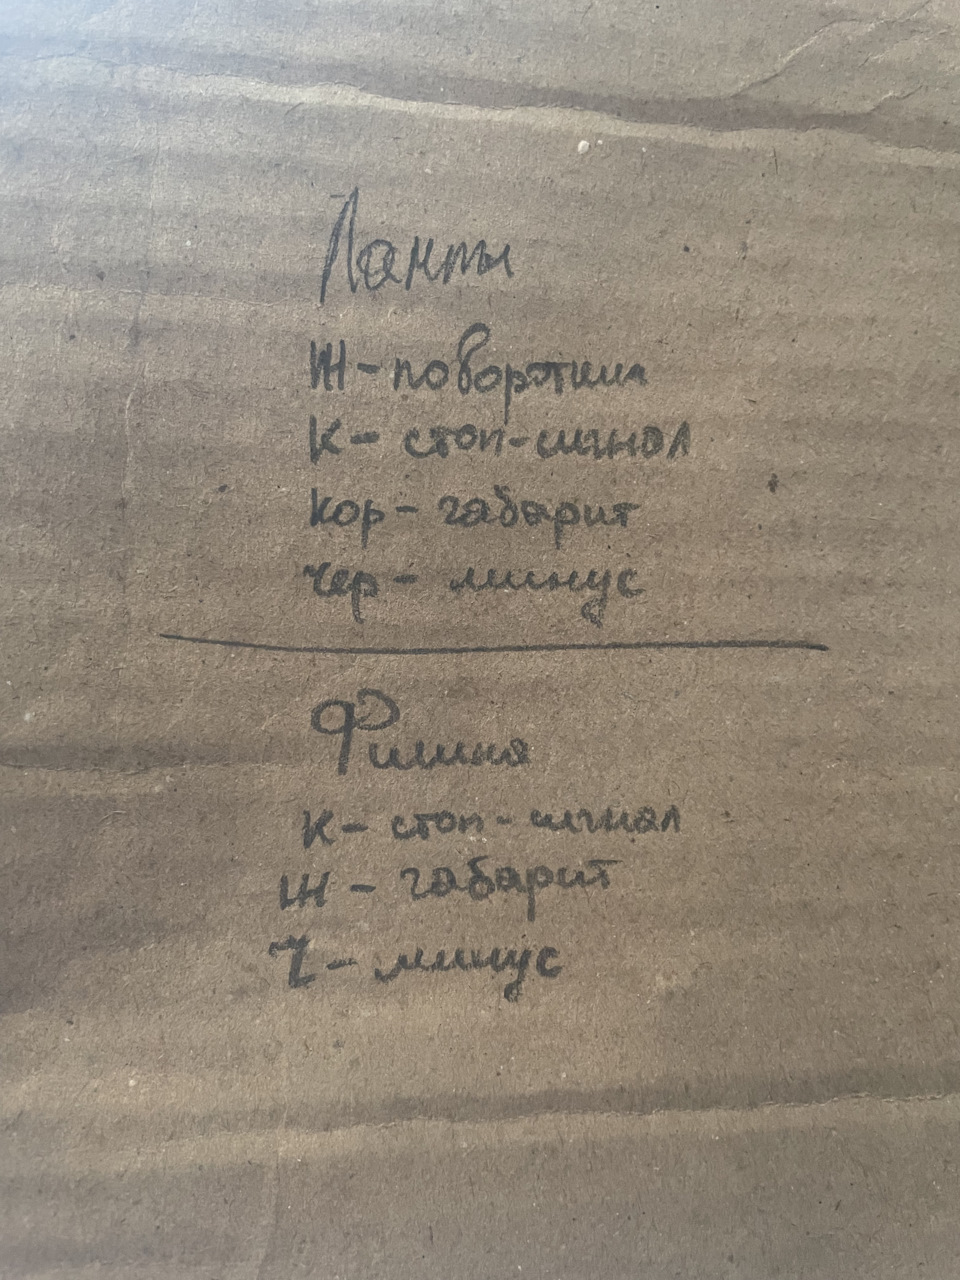 Лампы
Ж - поворотник
К - стоп-сигнал
Кор - габарит
Чер - минус
К - стоп-сигнал
Ж - габарит
Ч - минус